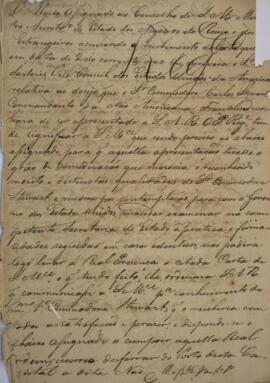 O abaixo assignado do Conselho de S. M. Mi
nistro e Secretario de Estado dos Negocios do Reino e dos
Estrangeiros accusando o recebimento da
em data de 2 do corrente que
Sartoris Vice Consul dos Estados Unidos da America
relativa ao desejo que o Sr Commodoro Carlos Stewart
Commandante da Náo Americana Franklin
de ser apresentado a S. A. R. O P. Regte tem
de significar a S. Mce que sendo preciso ao abaixo
assignado, para q aquella apresentação tivesse o
gráo de consideração que merecia o reconhecido
merito e distinctas qualidades do Sr Commodoro
Stewart, e mesmo por contemplação para com o Gover
no dos Estados Unidos, mandar examinar na com
petente Secretaria de Estado a pratica e forma
lidades seguidas em caso identico, não podéra
logo levar á Real Presença a citada Carta de
S. Mce e q tendo feito, lhe ordenára S. A. R.
q communicasse a S. Mce pa conhecimento do
mmo Sr Commodoro Stewart, q o receberia com
toda a satisfação e prazer, e dispondo-se o
abaixo assignado a cumprir aquella Real
ordem, occorreo desferrar do porto desta Ca
pital a dita Náo